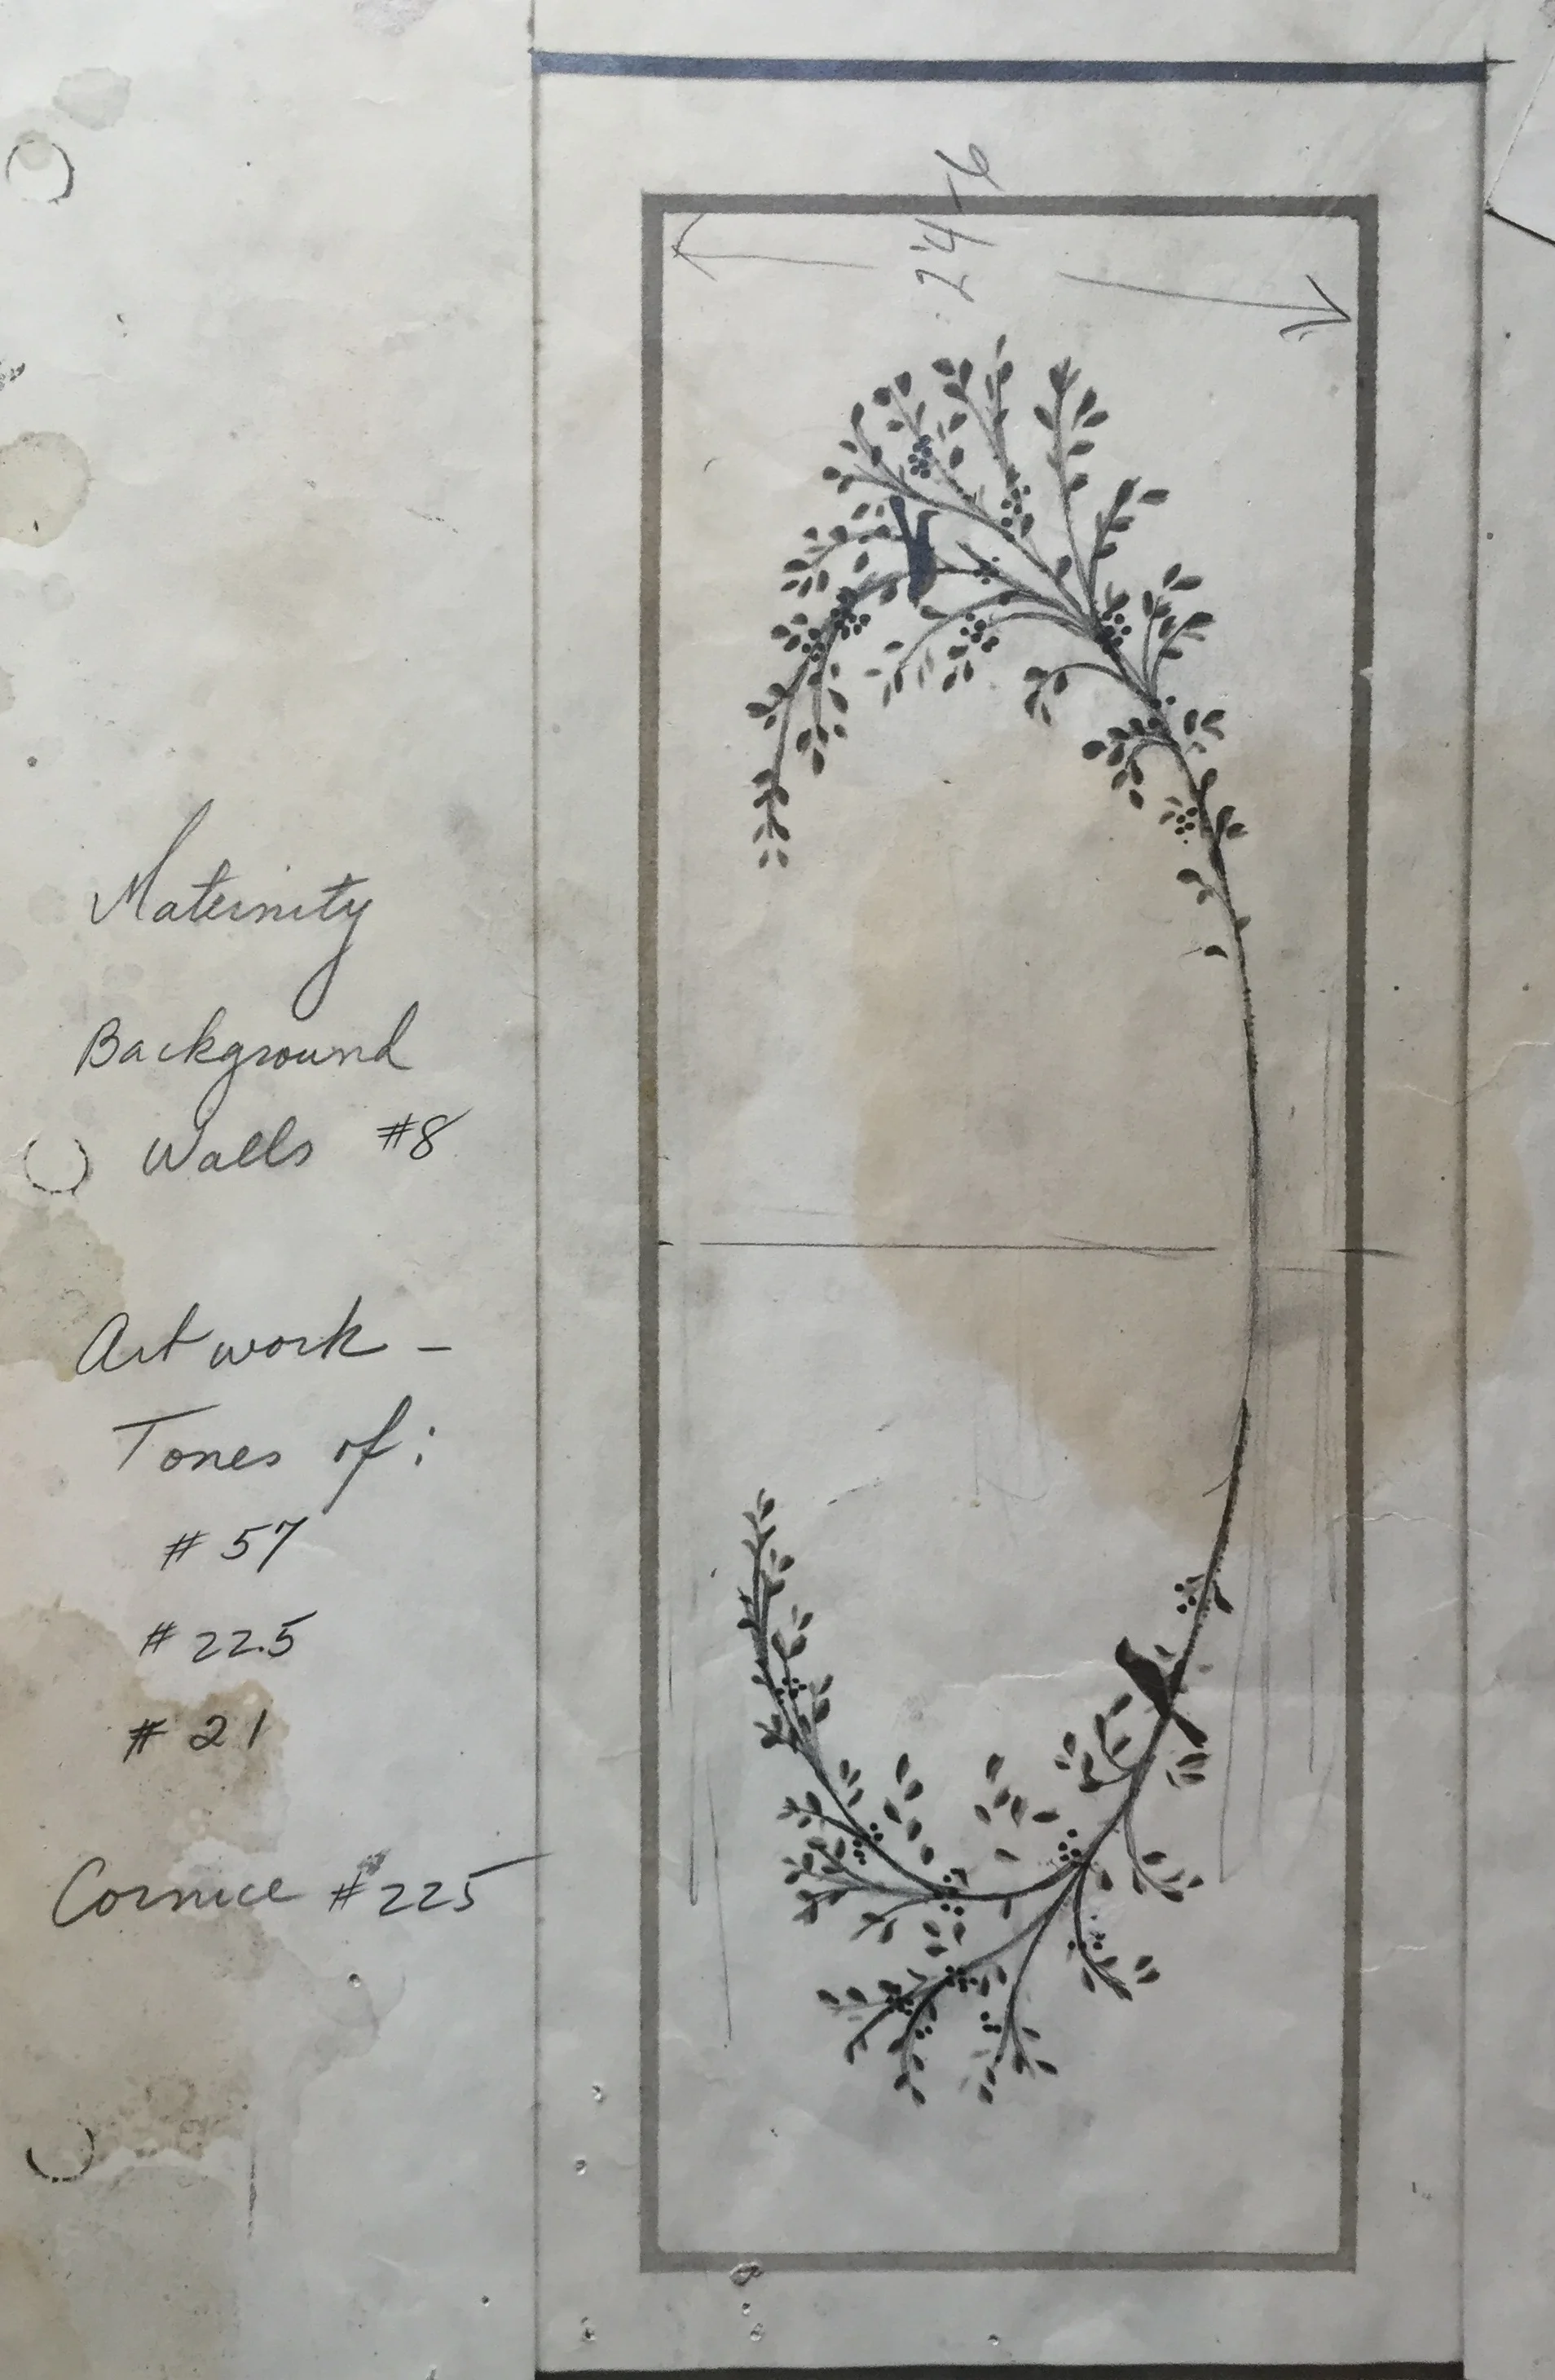 24-6
Maternity
Background
Walls #8
Art work -
Tones of:
# 57
# 22.5
# 21
Cornice #225